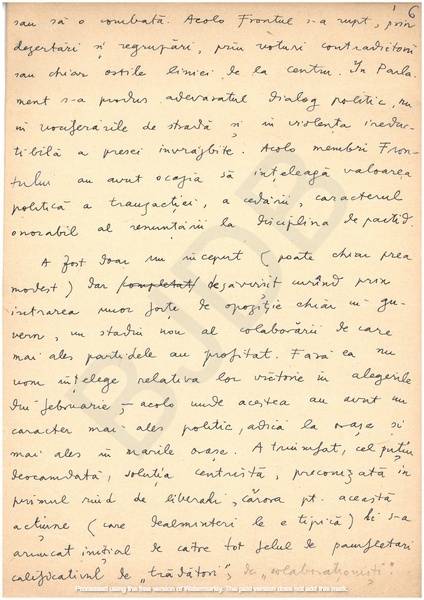 6
sau să o combată. Acolo Frontul s-a rupt, prin
dezertări și regrupări, prin voturi contradictorii
sau chiar ostile liniei de la centru. În Parla-
ment s-a produs adevăratul dialog politic, nu
în vociferările de stradă și în violența ireduc-
tibilă a presei învrăjbite. Acolo membri Fron-
tului au avut ocazia să înțeleagă valoarea
politică a tranzacției, a cedării, caracterul
onorabil al renunțării la disciplina de partid.
A fost doar un început (poate chiar prea
modest) dar completat desăvîrșit curînd prin
intrarea unor forțe de opoziție chiar în gu-
vern, un stadiu nou al colaborării de care
mai ales partidele au profitat. Fără ea nu
vom înțelege relativa lor victorie în alegerile
din februarie, – acolo unde acestea au avut un
caracter mai ales politic, adică la orașe și
mai ales în marile orașe. A triumfat, cel puțin
deocamdată, soluția centristă, preconizată în
primul rînd de liberali, cărora pt. această
acțiune (care dealminteri le e tipică) li s-a
aruncat inițial de către tot felul de pamfletari
calificativul de „trădători”, de „colaboraționiști”.
BJDB
Processed using the free version of Watermarkly. The paid version does not add this mark.